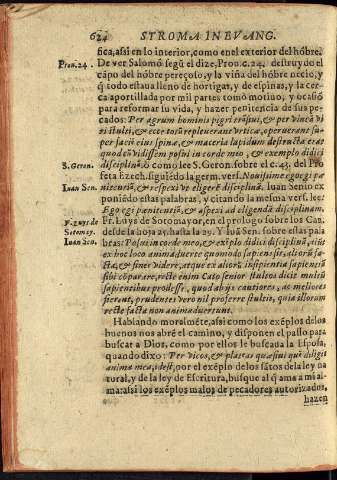 624 STROMA IN EVANG.
fica, assi en lo interior, como en el exterior del hõbre.
Prou. 24. De ver Salomõ segũ el dize, Prou. c. 24. destruydo el
cãpo del hõbre pereçoso, y la viña del hõbre necio, y
q̃ todo estaua lleno de hortigas, y de espinas, y la cer-
ca aportillada por mil partes tomò motiuo, y ocasiõ
para reformar su vida, y hazer penitencia de sus pe-
cados: Per agrum hominis pigri trãsiui, & per vineã vi-
ri stulti, & ecce totũ repleuerant vrticæ, operuerant su-
per faciẽ eius spinæ, & maceria lapidum destructa erat
quod cũ vidissem posui in corde meo, & exemplo didici
S. Geron. disciplinã. O como lee S. Geron. sobre el c. 43. del Pro
feta Ezech. siguiẽdo la germ. vers. Nouissime ego egi pæ
Iuan Sen. nitentiã, & respexi vt eligerẽ disciplinã. Iuan Senio ex
poniẽdo estas palabras, y citando la mesma vers. lee:
Ego egi pænitentiã, & aspexi ad eligendã disciplinam.
F. Luys de Fr. Luys de Sotomayor, en el prologo sobre los Can.
Sotomoy. desde la hoja 25. hasta la 29. Y Iuã Sen. sobre estas pala
Iuan Sen. bras: Posui in corde meo, & exẽplo didici disciplinã, aiũt
ex hoc loco animaduertere quomodo sapiens sit, altiorũ fa-
cta, & sinere videre, atque ex alior ũ insipientia sapienciã
sibi cõparare, rectè enim Cato senior stultos dicit multũ
sapientibus prodesse, quod ab ijs cautiores, ac meliores
fierent, prudentes vero nil proferre stultis, quia illorum
recte facta non animaduertunt.
Hablando moralmẽte, assi como los exẽplos delos
buenos nos abrẽ el camino, y disponen el passo para
buscar a Dios, como por ellos le buscaua la Esposa,
quando dixo: Per vicos, & plateas quæsiui quẽ diligit
anima mea, idest, por el exẽplo delos sãtos dela ley na
tural, y de la ley de Escritura, busque al q̃ ama a mi al-
ma: assi los exẽplos malos de pecadores autorizados,
hazen